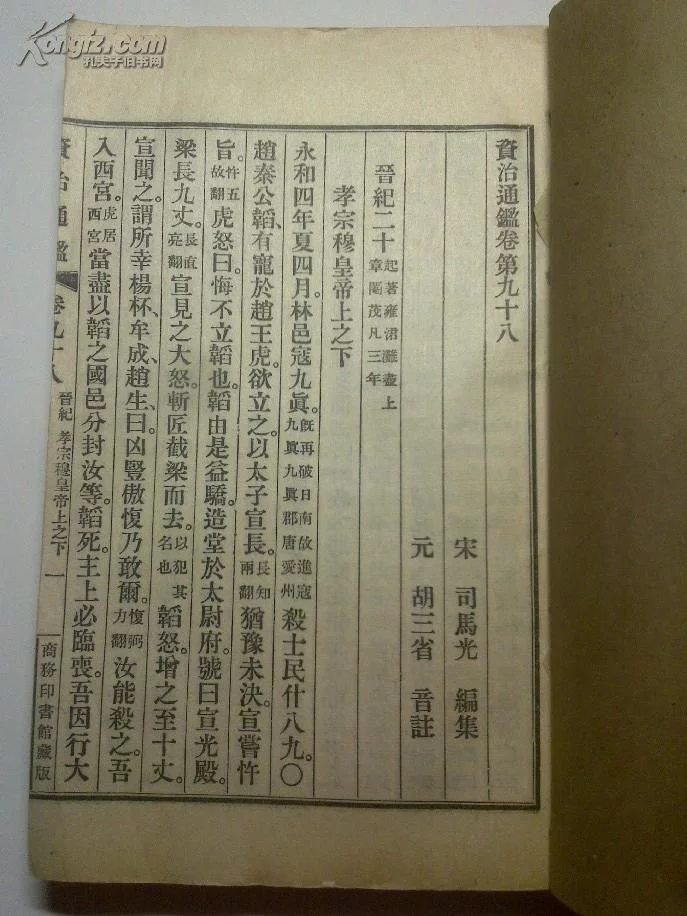 Kongfz.com
孔夫子旧书网
資治通鑑卷第九十八
宋 司馬光 編集
元 胡三省 音註
晉紀二十起著雍涒灘盡上章閹茂凡三年
孝宗穆皇帝上之下
永和四年夏四月。林邑寇九眞。旣再破日南故進寇九眞九眞郡唐愛州殺士民什八九。〇
趙秦公韜、有寵於趙王虎。欲立之。以太子宣長。長知兩翻猶豫未決。宣嘗忤
旨。忤五故翻虎怒曰。悔不立韜也。韜由是益驕。造堂於太尉府。號曰宣光殿。
梁長九丈。長直亮翻宣見之大怒。斬匠截梁而去。以犯其名也韜怒。增之至十丈。
宣聞之。謂所幸楊杯、牟成、趙生、曰。凶豎傲愎乃敢爾。愎弼力翻汝能殺之。吾
入西宮。虎居西宮當盡以韜之國邑分封汝等。韜死。主上必臨喪。吾因行大
資治通鑑 卷九十八 晉紀 孝宗穆皇帝上之下 一
商務印書館藏版